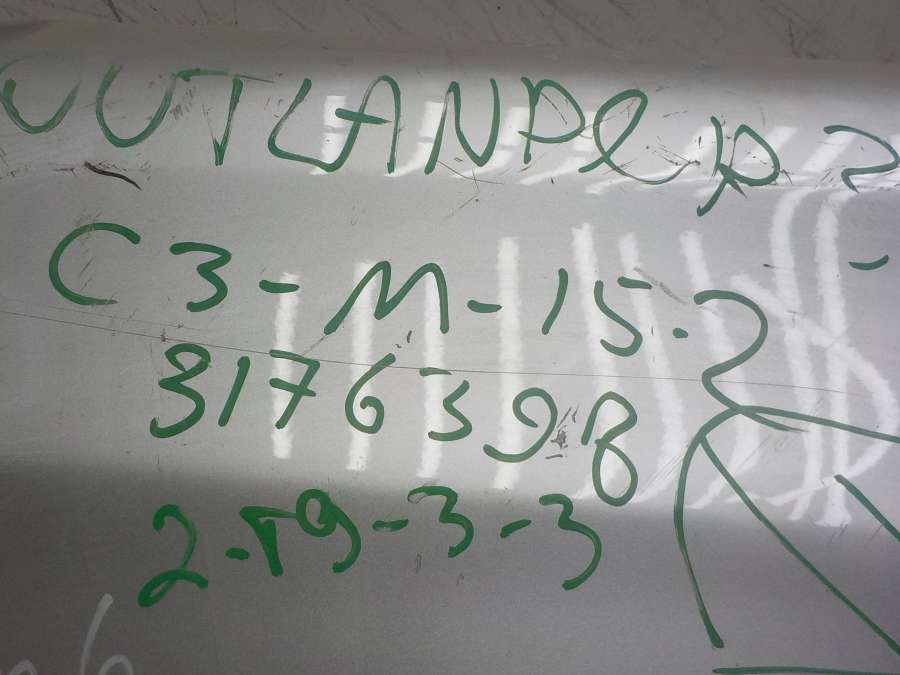 OUTLANDER 2
C3-M-15.2
31763598
2-19-3-3